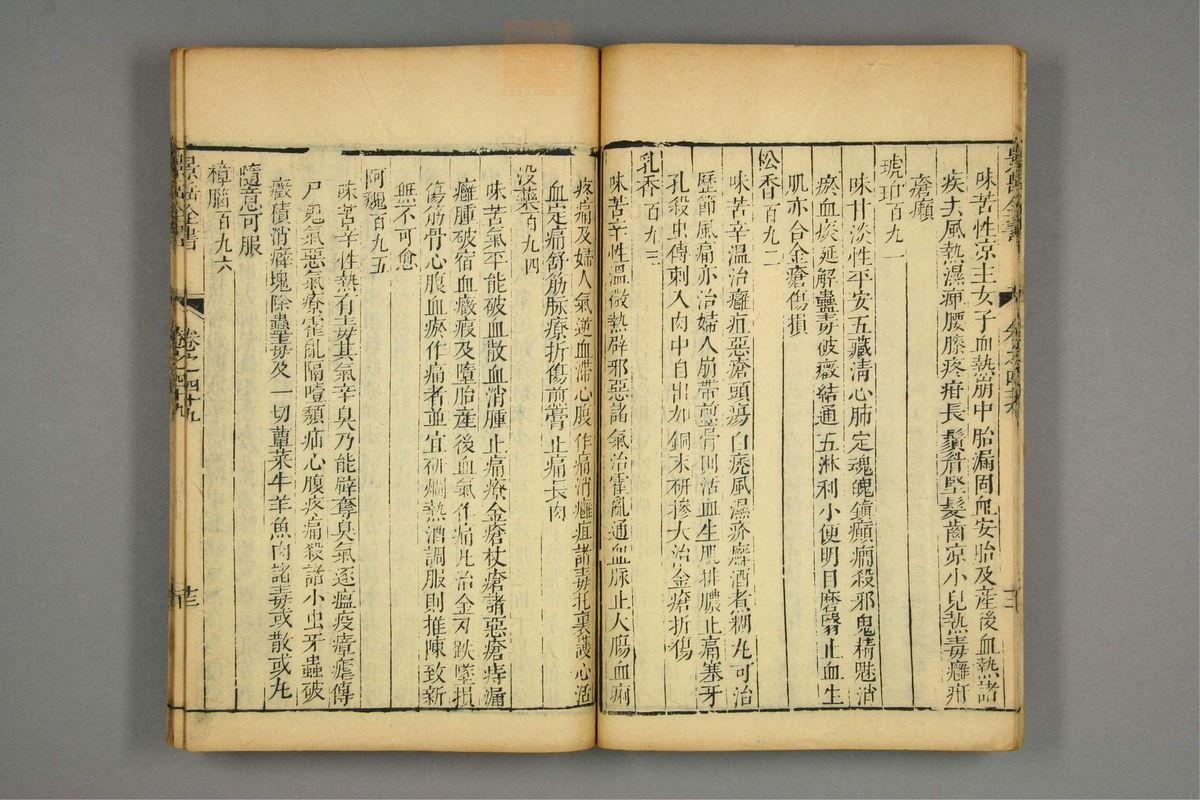 味苦性凉主女子血熱崩中胎漏固血安胎及產後血熱諸
疾去風熱濕痺腰膝疼疳長鬚眉堅髮齒凉小兒熱毒癰疳
瘡癩
琥珀百九一
味甘淡性平安五藏清心肺定魂魄鎮癲癎殺邪鬼精魅消
瘀血痰延解蠱毒破癥結通五淋利小便明目磨翳止血生
肌亦合金瘡傷損
松香百九二
味苦辛溫治癰疽惡瘡頭瘍白禿風濕疥癬酒煮糊丸可治
歷節風痛亦治婦人崩帶煎膏則活血生肌排膿止痛塞牙
孔殺虫傅刺入肉中自出加銅末研摻大治金瘡折傷
乳香百九三
味苦辛性溫微熱辟邪惡諸氣治霍亂通血脉止大腸血痢
疼痛及婦人氣逆血滯心腹作痛消癰疽諸毒托裏護心活
血定痛舒筋脉療折傷煎膏止痛長肉
没藥百九四
味苦氣平能破血散血消腫止痛療金瘡杖瘡諸惡瘡痔漏
癰腫破宿血癥瘕及墮胎產後血氣作痛凡治金刃跌墜損
傷筋骨心腹血瘀作痛者並宜研爛熱酒調服則推陳致新
無不可愈
阿魏百九五
味苦辛性熱有毒其氣辛臭乃能辟奪臭氣逐瘟疫瘴瘧傳
尸鬼氣惡氣療霍亂隔噎㿗疝心腹疼痛殺諸小虫牙蟲破
癥積消癖塊除蠱毒及一切蕈菜牛羊魚肉諸毒或散或丸
隨意可服
樟腦百九六
景岳全書
卷之四十九